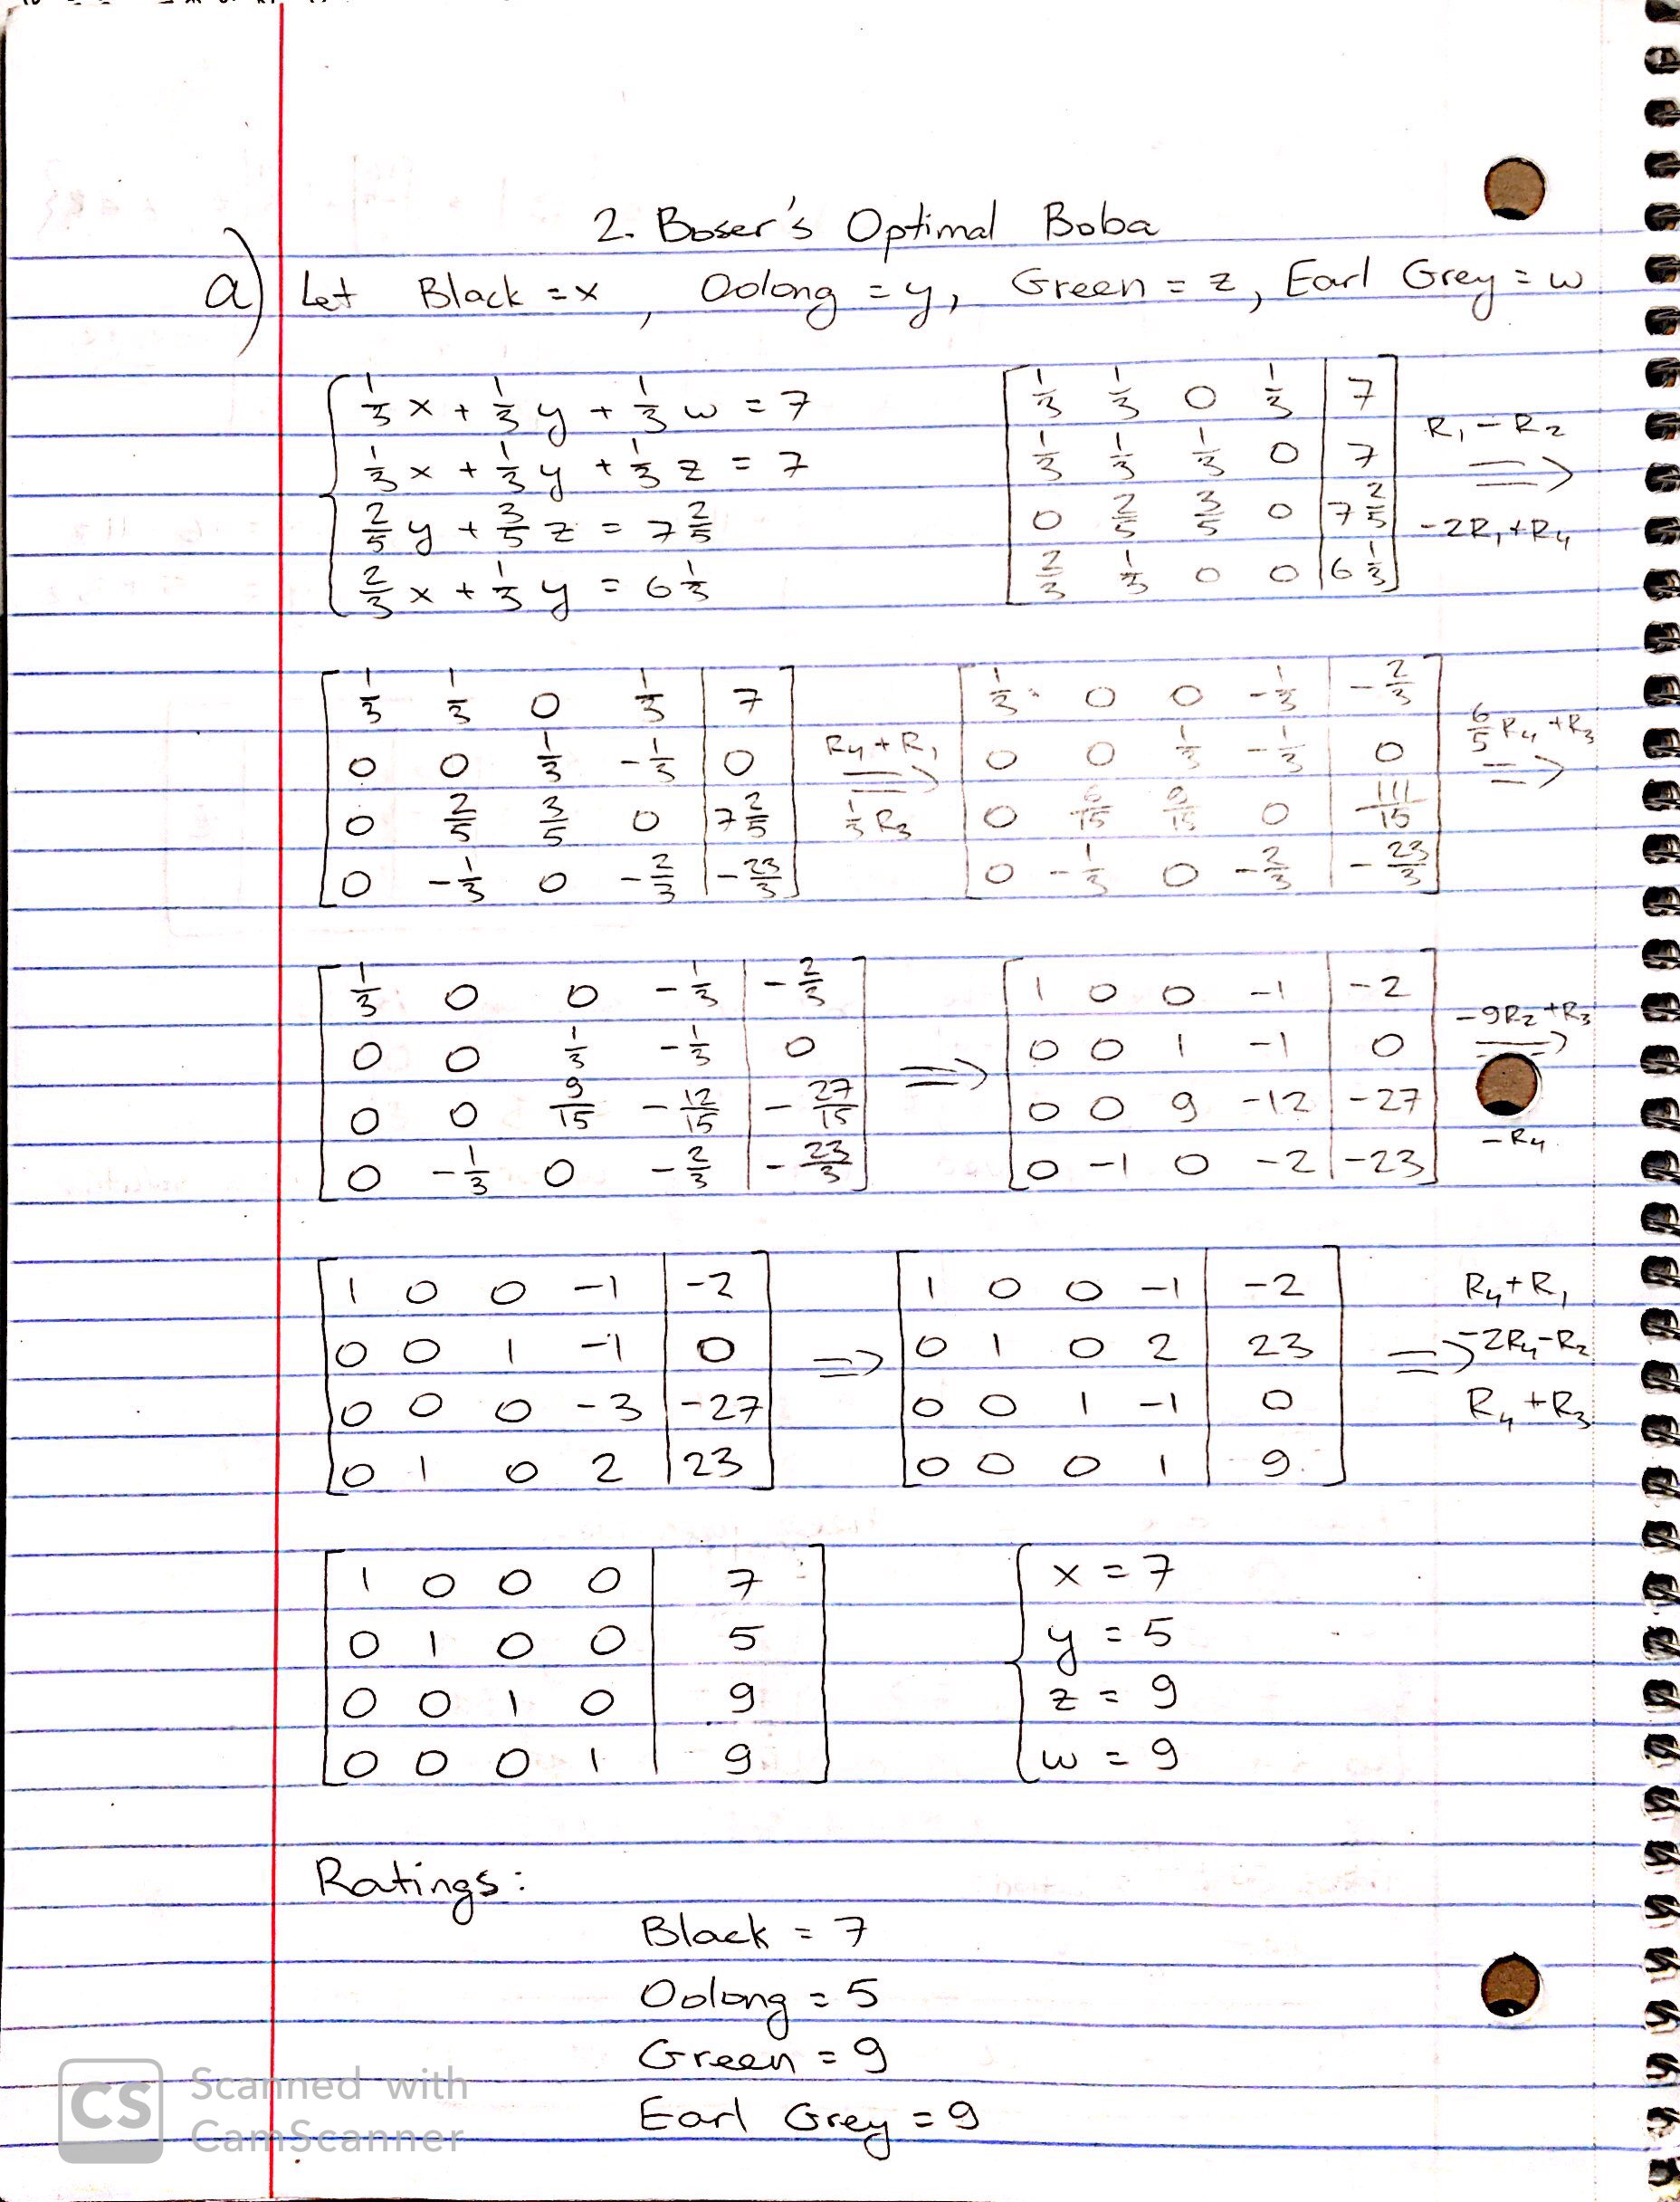 2. Boser's Optimal Boba
a) Let Black = x, Oolong = y, Green = z, Earl Grey = w
1/3 x + 1/3 y + 1/3 w = 7
1/3 x + 1/3 y + 1/3 z = 7
2/5 y + 3/5 z = 7 2/5
2/3 x + 1/3 y = 6 1/3
1/3 1/3 0 1/3 | 7
1/3 1/3 1/3 0 | 7
0 2/5 3/5 0 | 7 2/5
2/3 1/3 0 0 | 6 1/3
R1 - R2
=>
-2R1 + R4
1/3 1/3 0 1/3 | 7
0 0 1/3 -1/3 | 0
0 2/5 3/5 0 | 7 2/5
0 -1/3 0 -2/3 | -23/3
R4 + R1
=>
1/3 R3
1/3 0 0 -1/3 | -2/3
0 0 1/3 -1/3 | 0
0 6/15 9/15 0 | 111/15
0 -1/3 0 -2/3 | -23/3
6/5 R4 + R3
=>
1/3 0 0 -1/3 | -2/3
0 0 1/3 -1/3 | 0
0 0 9/15 -12/15 | -27/15
0 -1/3 0 -2/3 | -23/3
=>
1 0 0 -1 | -2
0 0 1 -1 | 0
0 0 9 -12 | -27
0 -1 0 -2 | -23
-9R2 + R3
=>
-R4
1 0 0 -1 | -2
0 0 1 -1 | 0
0 0 0 -3 | -27
0 1 0 2 | 23
=>
1 0 0 -1 | -2
0 1 0 2 | 23
0 0 1 -1 | 0
0 0 0 1 | 9
R4 + R1
=> -2R4 - R2
R4 + R3
1 0 0 0 | 7
0 1 0 0 | 5
0 0 1 0 | 9
0 0 0 1 | 9
x = 7
y = 5
z = 9
w = 9
Ratings:
Black = 7
Oolong = 5
Green = 9
Earl Grey = 9
CS Scanned with
CamScanner